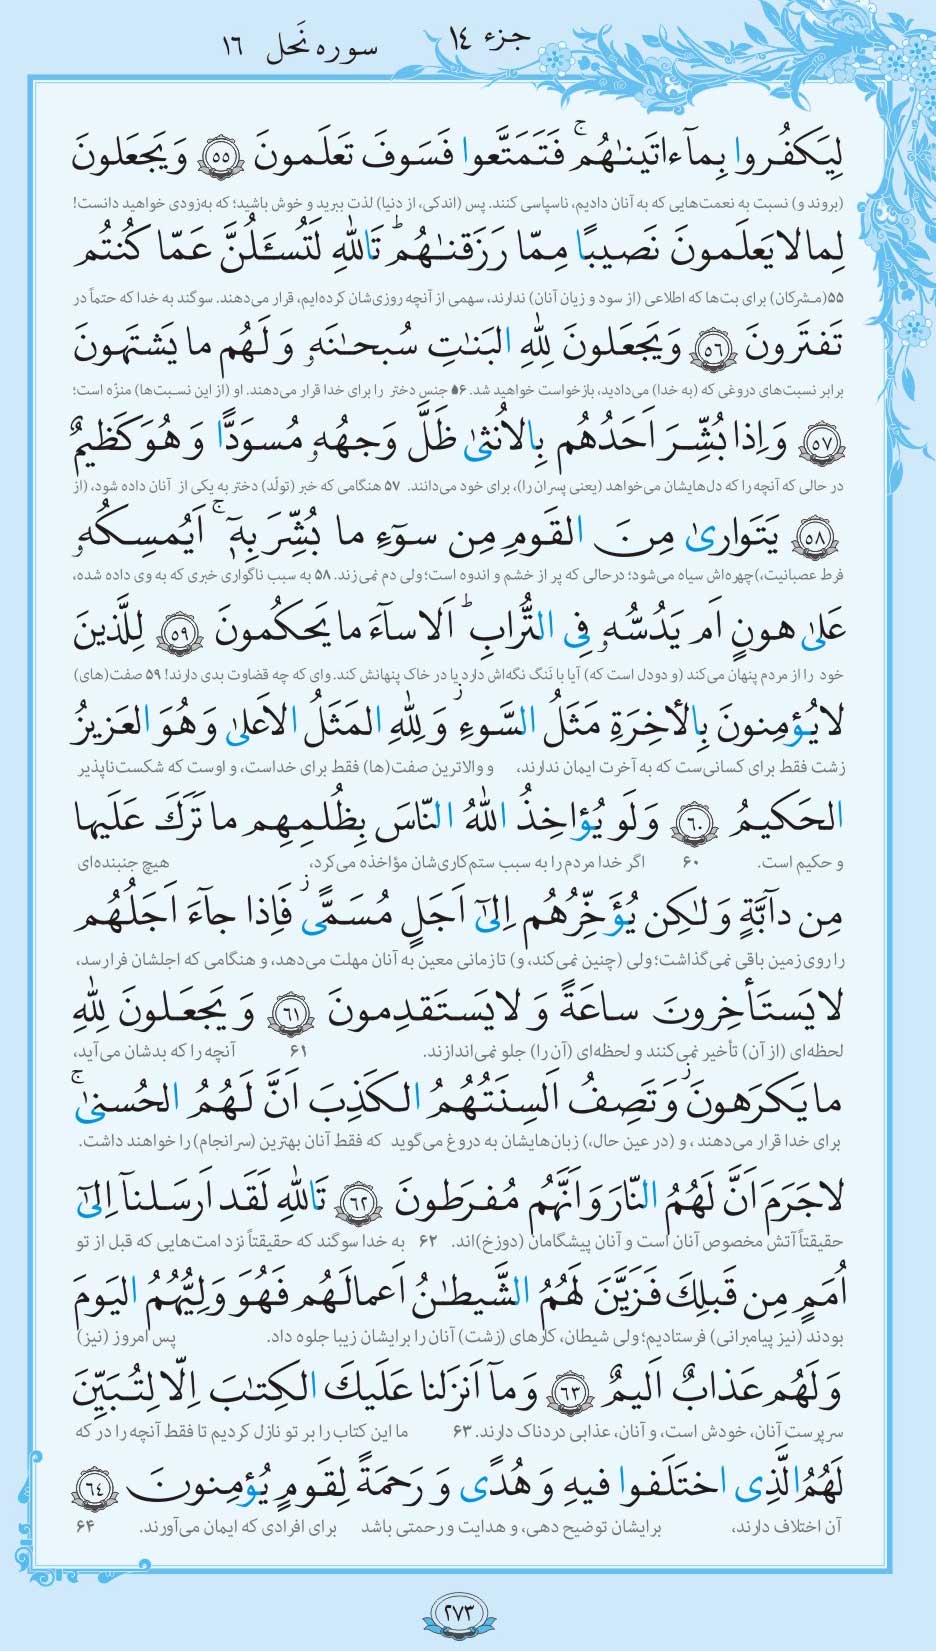 جزء ۱۴
سوره نَحل ۱۶
لِيَكفُروا بِمآ ءاتَينٰهُم ۚ فَتَمَتَّعوا فَسَوفَ تَعلَمونَ ﴿۵۵﴾ وَ يَجعَلونَ
(بروند و) نسبت به نعمت‌هایی که به آنان دادیم، ناسپاسی کنند. پس (اندکی، از دنیا) لذت ببرید و خوش باشید؛ که به‌زودی خواهید دانست!
لِما لا يَعلَمونَ نَصيبًا مِمّا رَزَقنٰهُم ؕ تَاللّٰهِ لَتُسـَٔلُنَّ عَمّا كُنتُم
۵۵ (مشرکان) برای بت‌ها که اطلاعی (از سود و زیان آنان) ندارند، سهمی از آنچه روزی‌شان کرده‌ایم، قرار می‌دهند. سوگند به خدا که حتماً در
تَفتَرونَ ﴿۵۶﴾ وَ يَجعَلونَ لِلّٰهِ البَنٰتِ سُبحٰنَهٗ وَ لَهُم ما يَشتَهونَ
برابر نسبت‌های دروغی که (به خدا) می‌دادید، بازخواست خواهید شد. ۵۶ جنس دختر را برای خدا قرار می‌دهند. او (از این نسبت‌ها) منزّه است؛
﴿۵۷﴾ وَ اِذا بُشِّرَ اَحَدُهُم بِالاُنثىٰ ظَلَّ وَجهُهٗ مُسوَدًّا وَ هُوَ كَظيمٌ
در حالی که آنچه را که دل‌هایشان می‌خواهد (یعنی پسران را)، برای خود می‌دانند. ۵۷ هنگامی که خبر (تولّد) دختر به یکی از آنان داده شود، (از
﴿۵۸﴾ يَتَوارىٰ مِنَ القَومِ مِن سوٓءِ ما بُشِّرَ بِهٖٓ ۚ اَيُمسِكُهٗ
فرط عصبانیت،) چهره‌اش سیاه می‌شود؛ درحالی که پر از خشم و اندوه است؛ ولی دم نمی‌زند. ۵۸ به سبب ناگواری خبری که به وی داده شده،
عَلىٰ هونٍ اَم يَدُسُّهٗ فِى التُّرابِ ؕ اَلا سآءَ ما يَحكُمونَ ﴿۵۹﴾ لِلَّذينَ
خود را از مردم پنهان می‌کند (و دودل است که) آیا با نَنگ نگه‌اش دارد یا در خاک پنهانش کند. وای که چه قضاوت بدی دارند! ۵۹ صفت(های)
لا يُؤمِنونَ بِالـٔاخِرَةِ مَثَلُ السَّوءِ ۖ وَ لِلّٰهِ المَثَلُ الاَعلىٰ وَ هُوَ العَزيزُ
زشت فقط برای کسانی‌ست که به آخرت ایمان ندارند، و والاترین صفت(ها) فقط برای خداست، و اوست که شکست‌ناپذیر
الحَكيمُ ﴿۶۰﴾ وَ لَو يُؤاخِذُ اللّٰهُ النّاسَ بِظُلمِهِم ما تَرَكَ عَلَيها
و حکیم است. ۶۰ اگر خدا مردم را به سبب ستم‌کاری‌شان مؤاخذه می‌کرد، هیچ جنبنده‌ای
مِن دآبَّةٍ وَ لٰكِن يُؤَخِّرُهُم اِلىٰٓ اَجَلٍ مُسَمًّى ۖ فَاِذا جآءَ اَجَلُهُم
را روی زمین باقی نمی‌گذاشت؛ ولی (چنین نمی‌کند، و) تا زمانی معین به آنان مهلت می‌دهد، و هنگامی که اجلشان فرارسد،
لا يَستَأخِرونَ ساعَةً وَ لا يَستَقدِمونَ ﴿۶۱﴾ وَ يَجعَلونَ لِلّٰهِ
لحظه‌ای (از آن) تأخیر نمی‌کنند و لحظه‌ای (آن را) جلو نمی‌اندازند. ۶۱ آنچه را که بدشان می‌آید،
ما يَكرَهونَ ۖ وَ تَصِفُ اَلسِنَتُهُمُ الكَذِبَ اَنَّ لَهُمُ الحُسنىٰ ۚ
برای خدا قرار می‌دهند، و (در عین حال،) زبان‌هایشان به دروغ می‌گوید که فقط آنان بهترین (سرانجام) را خواهند داشت.
لا جَرَمَ اَنَّ لَهُمُ النّارَ وَ اَنَّهُم مُفرَطونَ ﴿۶۲﴾ تَاللّٰهِ لَقَد اَرسَلنآ اِلىٰٓ
حقیقتاً آتش مخصوص آنان است و آنان پیشگامان (دوزخ)‌اند. ۶۲ به خدا سوگند که حقیقتاً نزد امت‌هایی که قبل از تو
اُمَمٍ مِن قَبلِكَ فَزَيَّنَ لَهُمُ الشَّيطٰنُ اَعمالَهُم فَهُوَ وَلِيُّهُمُ اليَومَ
بودند (نیز پیامبرانی) فرستادیم؛ ولی شیطان، کارهای (زشت) آنان را برایشان زیبا جلوه داد. پس امروز (نیز)
وَ لَهُم عَذابٌ اَليمٌ ﴿۶۳﴾ وَ مآ اَنزَلنا عَلَيكَ الكِتٰبَ اِلّا لِتُبَيِّنَ
سرپرست آنان، خودش است، و آنان، عذابی دردناک دارند. ۶۳ ما این کتاب را بر تو نازل کردیم تا فقط آنچه را در که
لَهُمُ الَّذِى اختَلَفوا فيهِ وَ هُدًى وَ رَحمَةً لِقَومٍ يُؤمِنونَ ﴿۶۴﴾
آن اختلاف دارند، برایشان توضیح دهی، و هدایت و رحمتی باشد برای افرادی که ایمان می‌آورند. ۶۴
۲۷۳